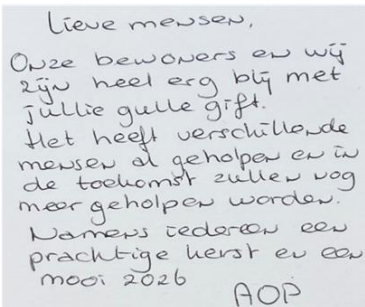 Lieve mensen,
Onze bewoners en wij
zijn heel erg blij met
jullie gulle gift.
Het heeft verschillende
mensen al geholpen en in
de toekomst zullen nog
meer geholpen worden.
Namens iedereen een
prachtige kerst en een
mooi 2026
AOP